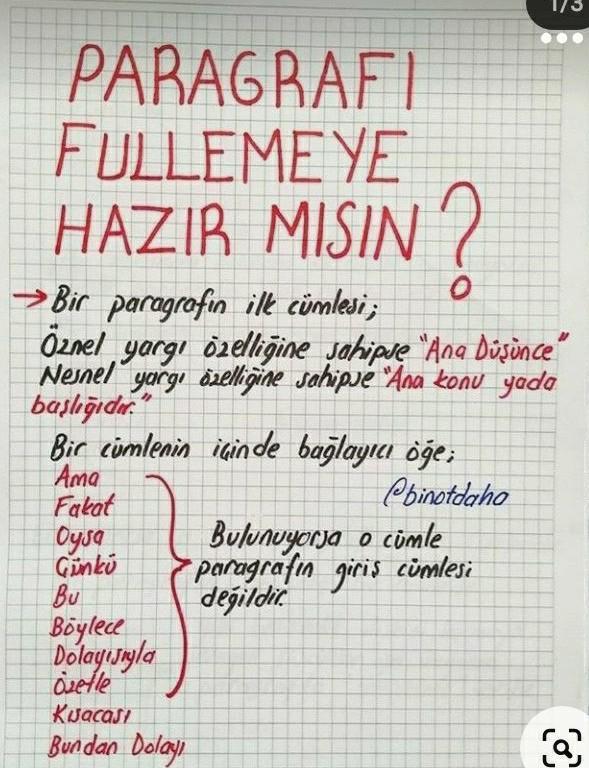 1/3
PARAGRAFI
FULLEMEYE
HAZIR MISIN?
→ Bir paragrafın ilk cümlesi;
Öznel yargı özelliğine sahipse "Ana Düşünce"
Nesnel yargı özelliğine sahipse "Ana konu yada
başlığıdır."
Bir cümlenin içinde bağlayıcı öğe;
Ama
@binotdaha
Fakat
Oysa
Çünkü
Bu
Böylece
Dolayısıyla
Özetle
Kısacası
Bundan Dolayı
Bulunuyorsa o cümle
paragrafın giriş cümlesi
değildir.